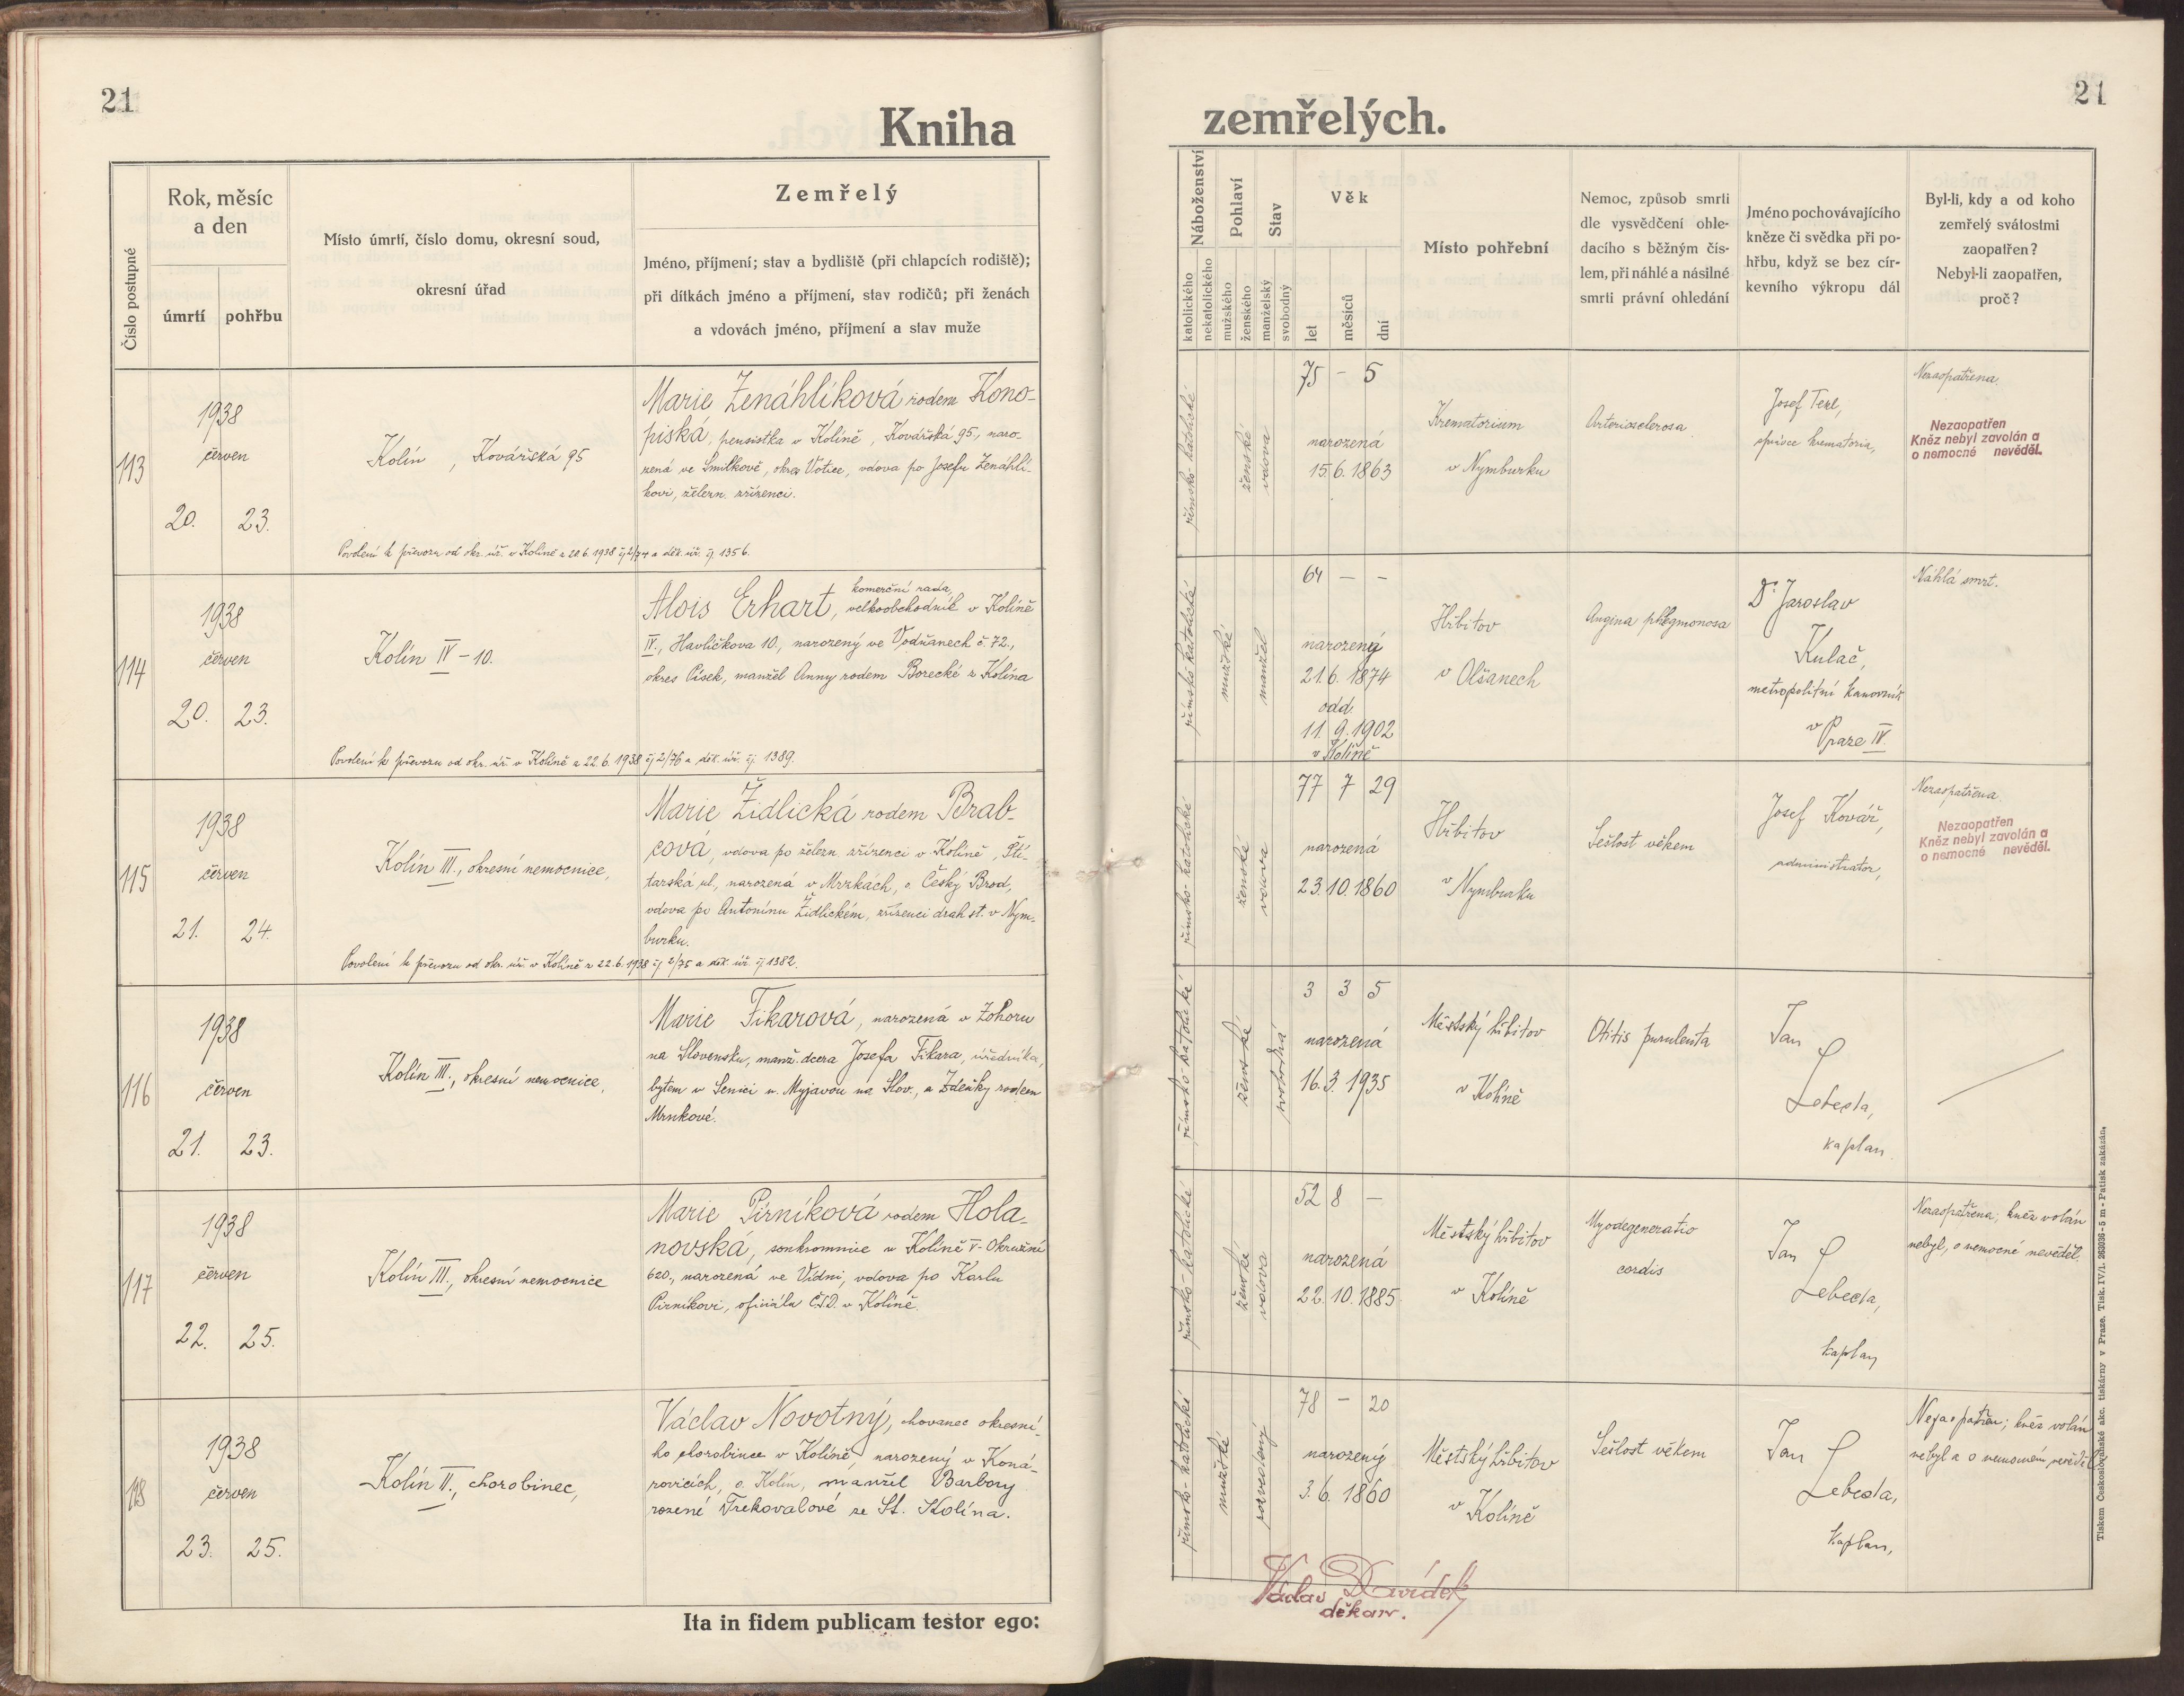 21
Kniha
Číslo postupné
Rok, měsíc
a den
úmrtí
pohřbu
Místo úmrtí, číslo domu, okresní soud,
okresní úřad
Zemřelý
Jméno, příjmení; stav a bydliště (při chlapcích rodiště);
při dítkách jméno a příjmení, stav rodičů; při ženách
a vdovách jméno, příjmení a stav muže
113
1938
červen
20. 23.
Kolín, Kovářská 95
Marie Zenáhlíková rodem Kono-
piská, pensistka v Kolíně, Kovářská 95, naro-
zená ve Smilkově, okres Votice, vdova po Josefu Zenáhlí-
kovi, železn. zřízenci.
Povolení k převozu od okr. úř. v Kolíně z 20.6.1938 čj 2/74 a děk. úř. čj 1356.
114
1938
červen
20. 23.
Kolín IV - 10.
komerční rada,
Alois Erhart, velkoobchodník v Kolíně
IV., Havlíčkova 10, narozený ve Vodňanech č. 72.,
okres Písek, manžel Anny rodem Borecké z Kolína
Povolení k převozu od okr. úř. v Kolíně z 22.6.1938 čj 2/76 a děk. úř. čj. 1389.
115
1938
červen
21. 24.
Kolín III., okresní nemocnice,
Marie Židlická rodem Brab-
cová, vdova po železn. zřízenci v Kolíně, Ští-
tarská ul., narozená v Mrzkách, o. Český Brod,
vdova po Antonínu Židlickém, zřízenci drah st. v Nym-
burku.
Povolení k převozu od okr. úř. v Kolíně z 22.6.1938 čj. 2/75 a děk. úř. čj 1382.
116
1938
červen
21. 23.
Kolín III., okresní nemocnice,
Marie Fikarová, narozená v Zohoru
na Slovensku, manž. dcera Josefa Fikara, úředníka,
bytem v Senici n. Myjavou na Slov., a Zdeňky rodem
Mrnkové.
117
1938
červen
22. 25.
Kolín III., okresní nemocnice
Marie Pirníková rodem Hola-
novská, soukromnice v Kolíně V - Okružní
620, narozená ve Vídni, vdova po Karlu
Pirníkovi, oficiálu ČSD. v Kolíně.
118
1938
červen
23. 25.
Kolín II., chorobinec,
Václav Novotný, chovanec okresní-
ho chorobince v Kolíně, narozený v Koná-
rovicích, o. Kolín, manžel Barbory
rozené Trekovalové ze St. Kolína.
Ita in fidem publicam testor ego:
zemřelých.
21
Náboženství
katolického
nekatolického
Pohlaví
mužského
ženského
Stav
manželský
svobodný
Věk
let
měsíců
dní
Místo pohřební
Nemoc, způsob smrti
dle vysvědčení ohle-
dacího s běžným čís-
lem, při náhlé a násilné
smrti právní ohledání
Jméno pochovávajícího
kněze či svědka při po-
hřbu, když se bez cír-
kevního výkropu dál
Byl-li, kdy a od koho
zemřelý svátostmi
zaopatřen?
Nebyl-li zaopatřen,
proč?
římsko-katolické
ženské
vdova
75 - 5
narozená
15.6.1863
Krematorium
v Nymburku
Arteriosclerosa
Josef Terl,
správce krematoria,
Nezaopatřena.
Nezaopatřen
Kněz nebyl zavolán a
o nemocné nevěděl.
římsko-katolické
mužské
manžel
64 - -
narozený
21.6.1874
odd.
11.9.1902
v Kolíně
Hřbitov
v Olšanech
Angina phlegmonosa
Dr. Jaroslav
Kulač,
metropolitní kanovník
v Praze IV.
Náhlá smrt.
římsko-katolické
ženské
vdova
77 7 29
narozená
23.10.1860
Hřbitov
v Nymburku
Sešlost věkem
Josef Kovář,
administrátor,
Nezaopatřena.
Nezaopatřen
Kněz nebyl zavolán a
o nemocné nevěděl.
římsko-katolické
ženské
svobodná
3 3 5
narozená
16.3.1935
Městský hřbitov
v Kolíně
Otitis purulenta
Jan
Lebeda,
kaplan.
římsko-katolické
ženské
vdova
52 8 -
narozená
22.10.1885
Městský hřbitov
v Kolíně
Myodegeneratio
cordis
Jan
Lebeda,
kaplan
Nezaopatřena; kněz volán
nebyl, o nemocné nevěděl.
římsko-katolické
mužské
rozvedený
78 - 20
narozený
3.6.1860
Městský hřbitov
v Kolíně
Sešlost věkem
Jan
Lebeda,
kaplan,
Nezaopatřen; kněz volán
nebyl a o nemocném nevěděl
Václav Davídek
děkan.
Tiskem Československé akc. tiskárny v Praze. Tisk. IV/1. 263036-5 m - Patisk zakázán.